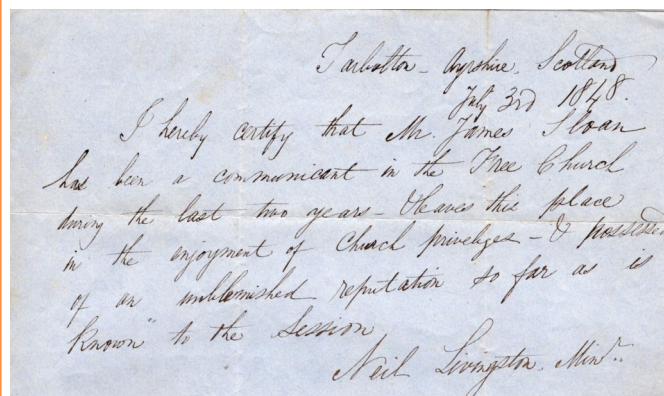 Tarbolton - Ayrshire. Scotland
July 3rd 1848.
I hereby certify that Mr. James Sloan
has been a communicant in the Free Church
during the last two years - & leaves this place
in the enjoyment of Church priveliges - & possessed
of an unblemished reputation so far as is
known to the Session
Neil Livingston. Minr.